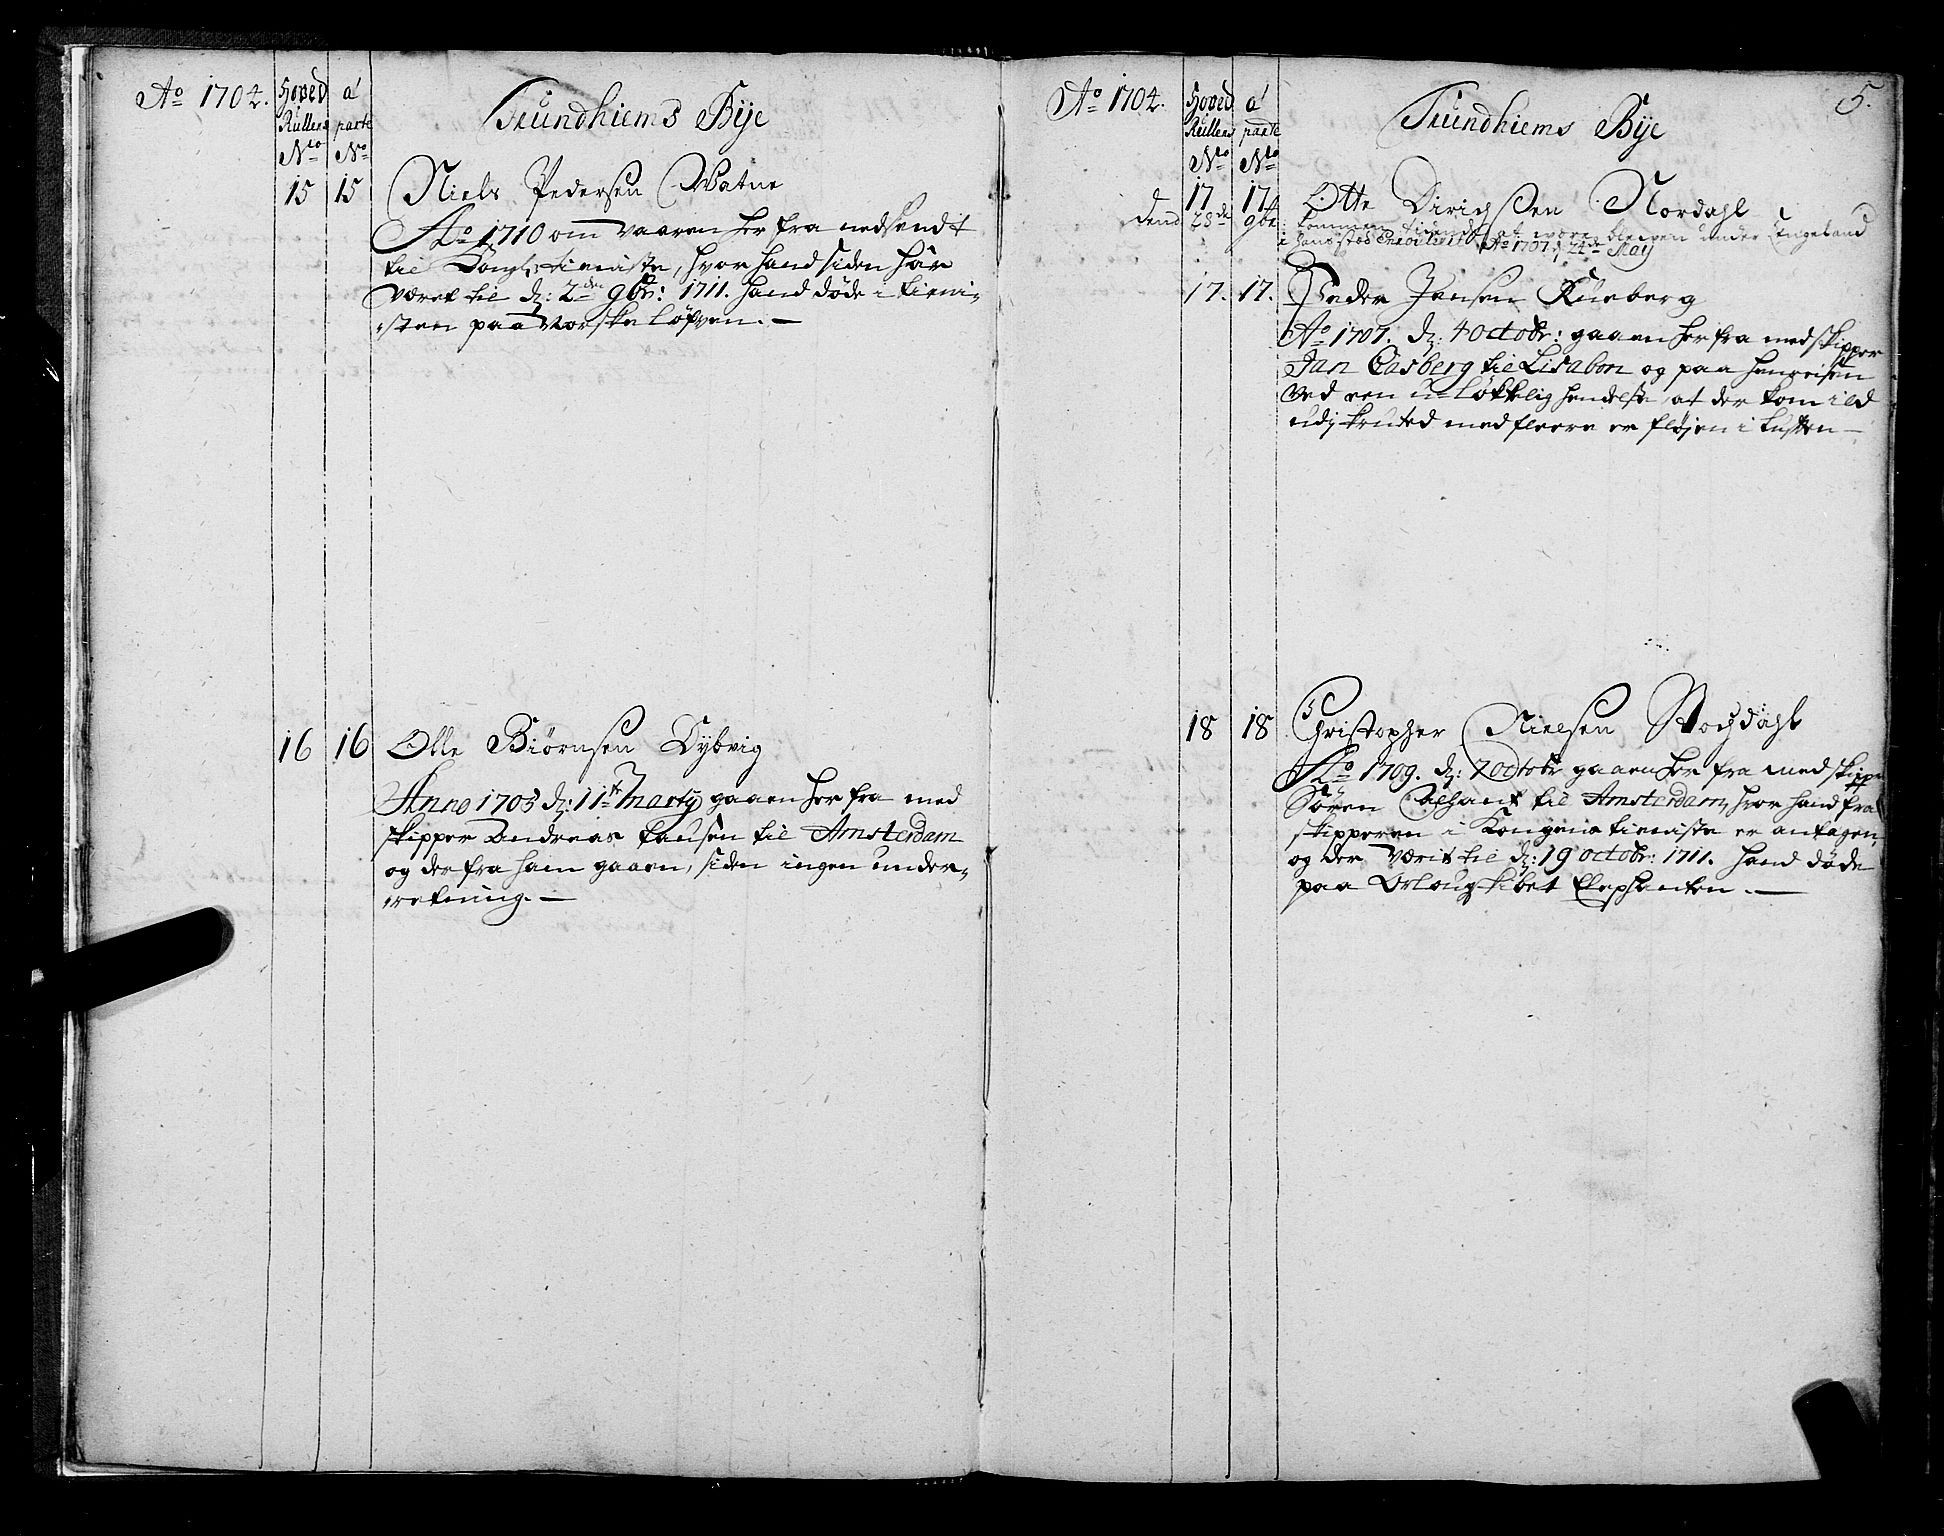 Ao 1704.
Hoved Rullens No
a parte No
Trundhiems Bije
15 15 Niels Pedersen Vatne
Ao 1710 om vaaren her fra nedsendt
til Kongl: tieniste, hvor hand siden har
været til d: 2den 9br: 1711. hand døde i tieni-
sten paa Norske Løfven. —
16 16 Olle Biørnsen Dybvig
Anno 1705 d: 11te Marty gaaen her fra med
skipper Andreas Pausen til Amsterdam
og der fra ham gaaen, siden ingen under-
retning. —
Ao 1704.
Hoved Rullens No
a parte No
Trundhiems Bije
5.
17 17 Otte Dirichsen Nordahl
dend 28de 9br: kommen tidende at være bleven under Engeland
i hans stæd Enroulerit Ao 1707 24de Maij
17. 17. Peder Jansen Rueberg
Ao 1707. d: 4 octobr: gaaen her fra med skipper
Jan Casberg til Lisabon og paa henreisen
ved een u-løkkelig hendelse, at der kom ild
udj krudted med fleere er fløjen i luften —
18 18 Christopher Nielsen Stochdahl
Ao 1709. d: 7 Octobr gaaen her fra med skipper
Søren til Amsterdam, hvor hand fra
skipperen i Kongens tieniste er antagen,
og der værit til d: 19 octobr: 1711. hand døde
paa Orlougskibet Elephanten. —